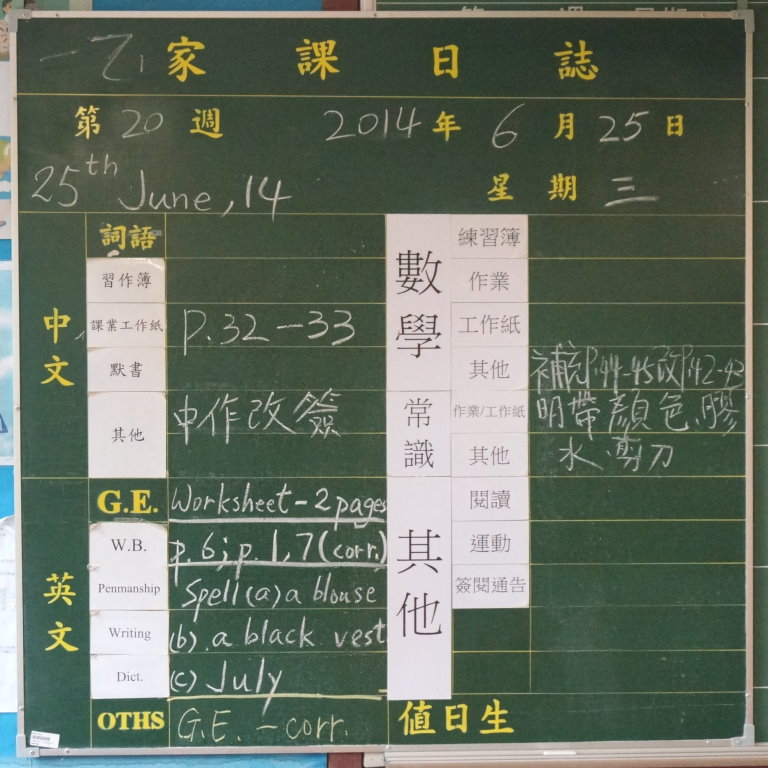 一乙 家課日誌
第 20 週 2014 年 6 月 25 日
25th June, 14 星期 三
中文
詞語
習作簿
課業工作紙 P.32-33
默書
其他 中作改簽
英文
G.E. Worksheet - 2 pages
W.B. p.6; p.1, 7 (corr.)
Penmanship Spell (a) a blouse
Writing (b) a black vest
Dict. (c) July
OTHS G.E. - corr.
數學
練習簿
作業
工作紙
其他 補充P.44-45改P.42-43
常識
作業/工作紙 明帶顏色、膠
其他 水、剪刀
其他
閱讀
運動
簽閱通告
值日生